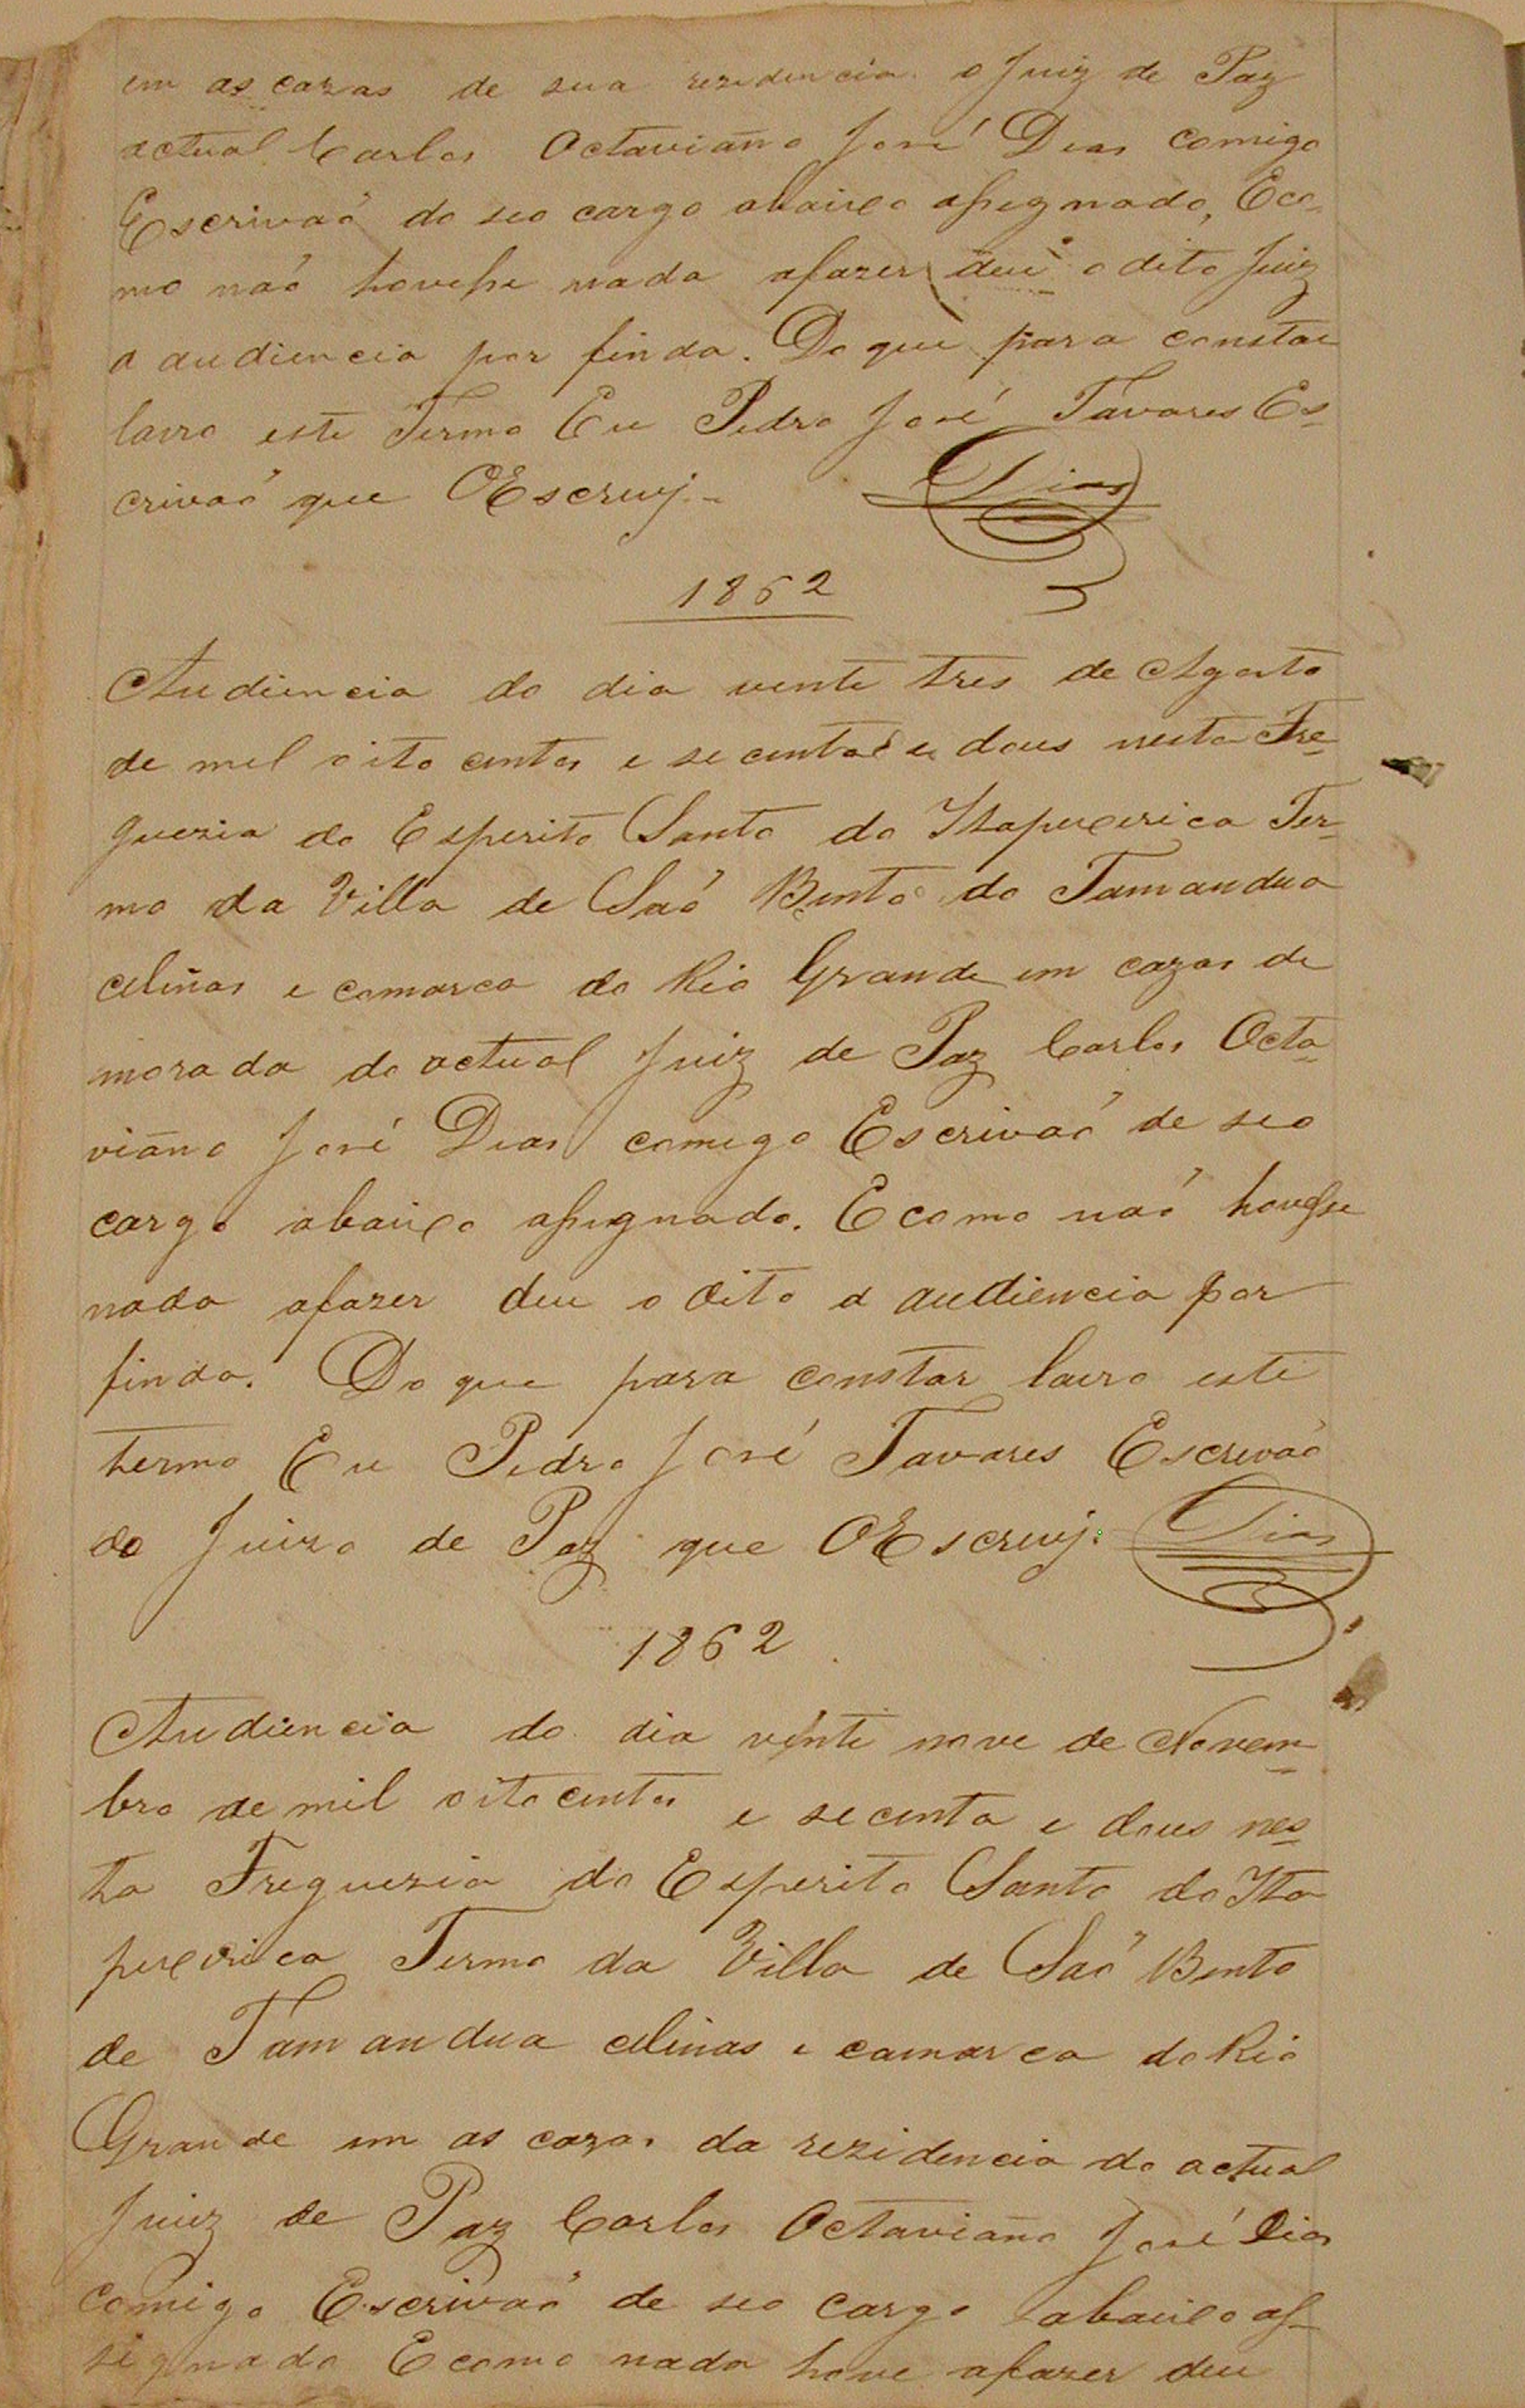 em as cazas de sua rezidencia o Juiz de Paz
actual Carlos Octaviano José Dias comigo
Escrivaõ do seo cargo abaixo assignado, Eco-
mo naõ houvesse nada afazer deu o dito Juiz
a audiencia por finda. Do que para constar
lavro este Termo Eu Pedro José Tavares Es-
crivaõ que OEscrevj.
Dias
1862
Audiencia do dia vente tres de Agosto
de mil oito centos e secenta e dous nesta Fre-
guezia do Esperito Santo do Itapecerica Ter-
mo da Villa de Saõ Bento do Tamandua
Minas e comarca do Rio Grande em cazas de
morada do actual Juiz de Paz Carlos Octa-
viano José Dias comego Escrivaõ de seo
cargo abaixo assignado. Ecomo naõ houvesse
nada afazer deu o dito a audiencia por
finda. Do que para constar lavro este
termo Eu Pedro José Tavares Escrevaõ
do Juizo de Paz que OEscrevj.
Dias
1862
Audiencia do dia vinte nove de Novem-
bro de mil oitocentos e secenta e dous nes-
ta Freguezia do Esperito Santo do Ita
pecerica Termo da Villa de Saõ Bento
de Tamandua Minas e camarca do Rio
Grande em as cazas da rezidencia do actual
Juiz de Paz Carlos Octaviano José Dias
comigo Escrivaõ de seo cargo abaixo as-
signado Ecomo nada hove afazer deu